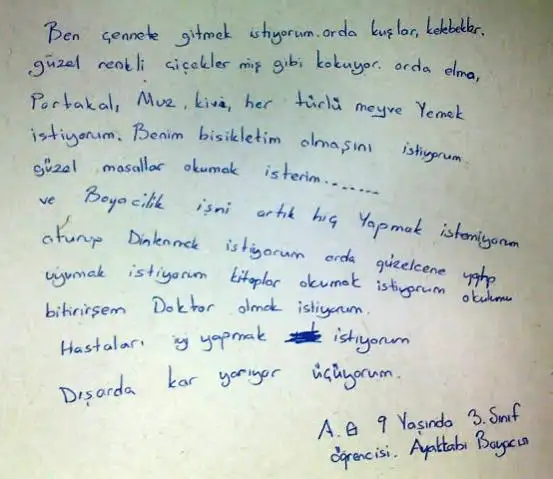 Ben cennete gitmek istiyorum. orda kuşlar, kelebekler.
güzel renkli çiçekler miş gibi kokuyor. orda elma,
Portakal, Muz, kivi, her türlü meyve Yemek
istiyorum. Benim bisikletim olmasını istiyorum
güzel masallar okumak isterim.......
ve Boyacilik işni artık hiç Yapmak istemiyorum
oturup Dinlenmek istiyorum orda güzelcene yatıp
uyumak istiyorum kitaplar okumak istiyorum okulumu
bitirirsem Doktor olmak istiyorum.
Hastaları iyi yapmak istiyorum
Dışarda kar yarıyor üçüyorum.
A.G 9 Yaşında 3. Sınıf
öğrencisi. Ayaktabı Boyacısı